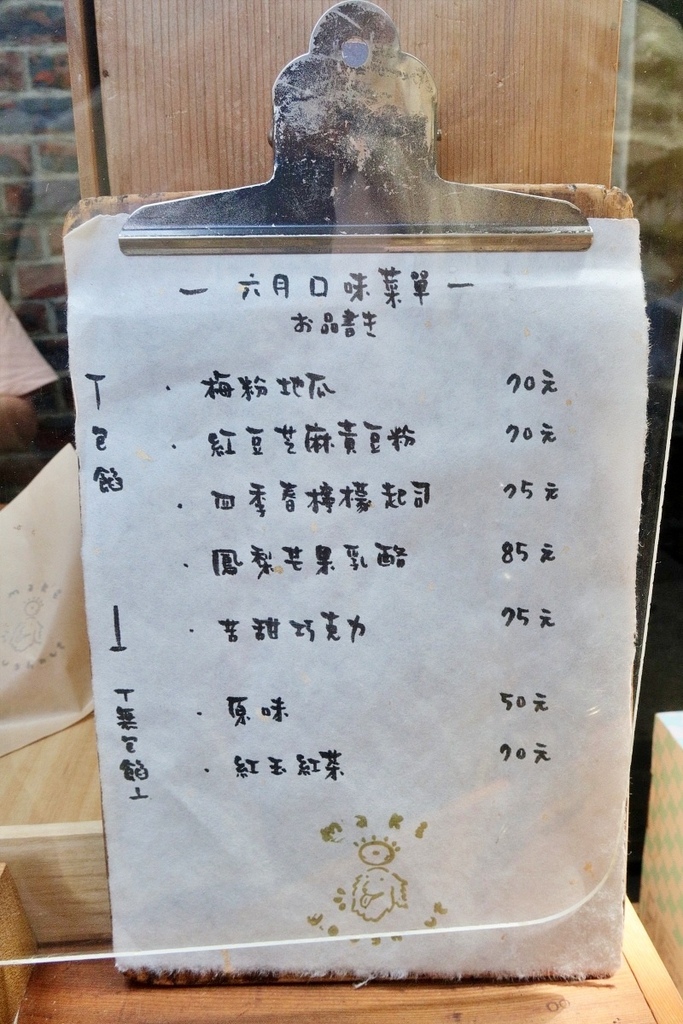 一 六月口味菜單 一
お品書き
包餡
· 梅粉地瓜 70元
· 紅豆芝麻黃豆粉 70元
· 四季春檸檬起司 75元
· 鳳梨芒果乳酪 85元
· 苦甜巧克力 75元
無包餡
· 原味 50元
· 紅玉紅茶 70元
maki